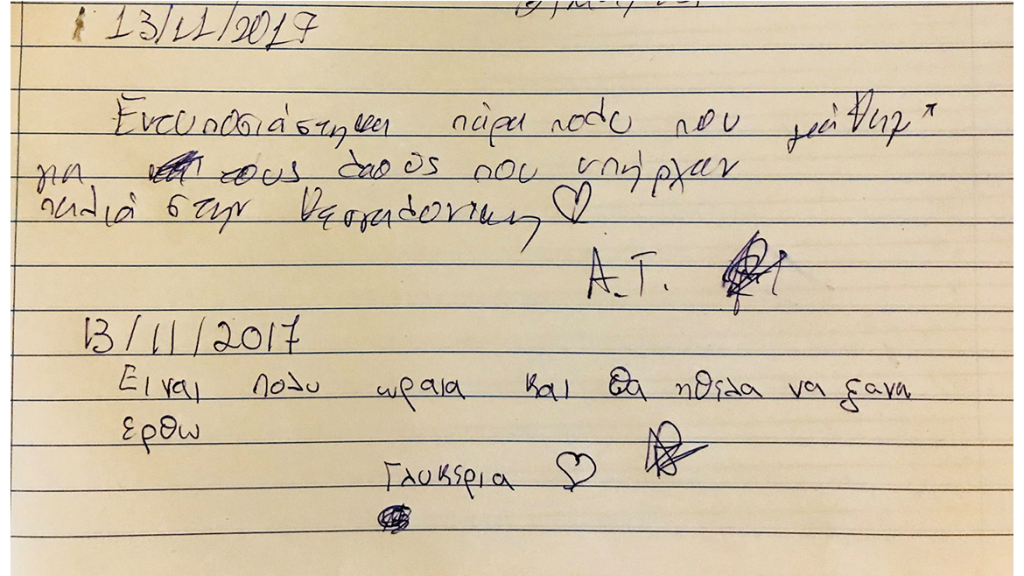 13/11/2017
Εντυποσιάστηκα πάρα πολυ που μάθαμ
για τους λαούς που υπήρχαν
παλιά στην Θεσσαλονικη ♡
Α.Τ.
13/11/2017
Ειναι πολυ ωραια και θα ηθελα να ξανα
ερθω
Γλυκερια ♡